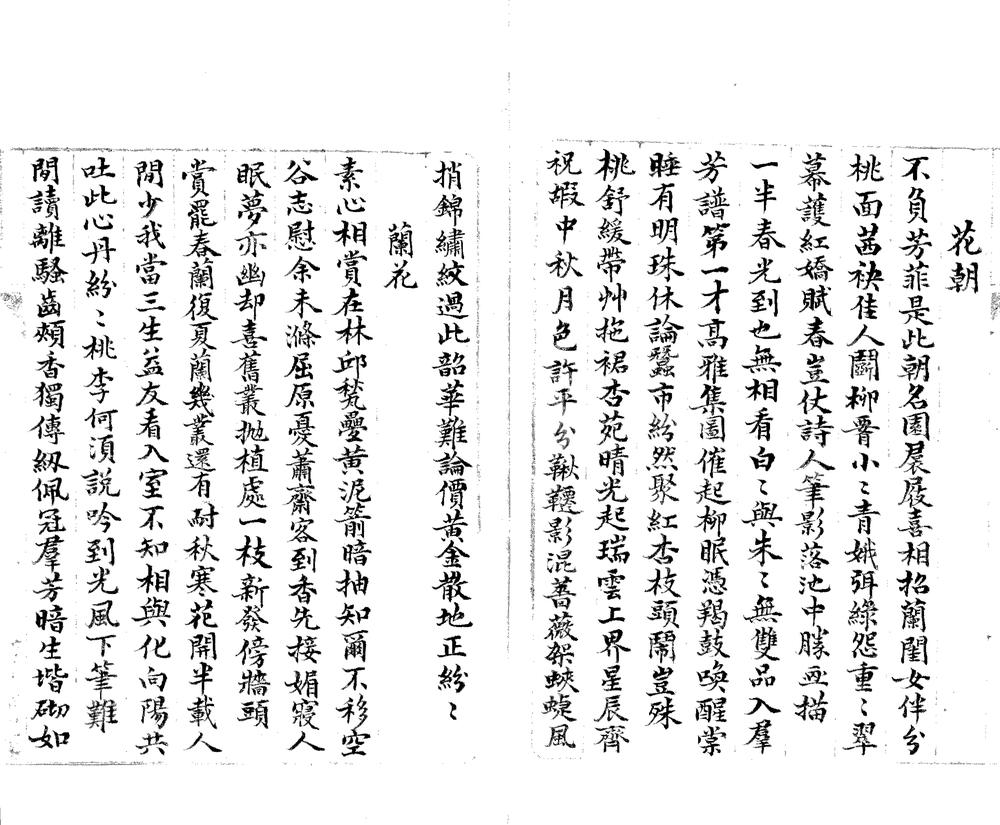 花朝
不負芳菲是此朝名園屐屐喜相招蘭閨女伴分
桃面茜袂佳人鬬柳腰小〻青娥弭綠怨重〻翠
幕護紅嬌賦春豈仗詩人筆影落池中勝画描
一半春光到也無相看白〻與朱〻無雙品入羣
芳譜第一才高雅集圖催起柳眠憑羯鼓喚醒棠
睡有明珠休論蠶市紛然聚紅杏枝頭鬧豈殊
桃舒緩帶艸拖裙杏苑晴光起瑞雲上界星辰齊
祝嘏中秋月色許平分鞦韆影混薔薇架蛺蝶風
捎錦繡紋過此韶華難論價黃金散地正紛〻
蘭花
素心相賞在林邱甃疊黃泥箭暗抽知爾不移空
谷志慰余未滌屈原憂蕭齋客到香先接媚寢人
眠夢亦幽却喜舊叢拋植處一枝新發傍牆頭
賞罷春蘭復夏蘭幾叢還有耐秋寒花開半載人
閒少我當三生益友看入室不知相與化向陽共
吐此心丹紛〻桃李何須說吟到光風下筆難
閒讀離騷齒頰香獨傳紉佩冠羣芳暗生堦砌如